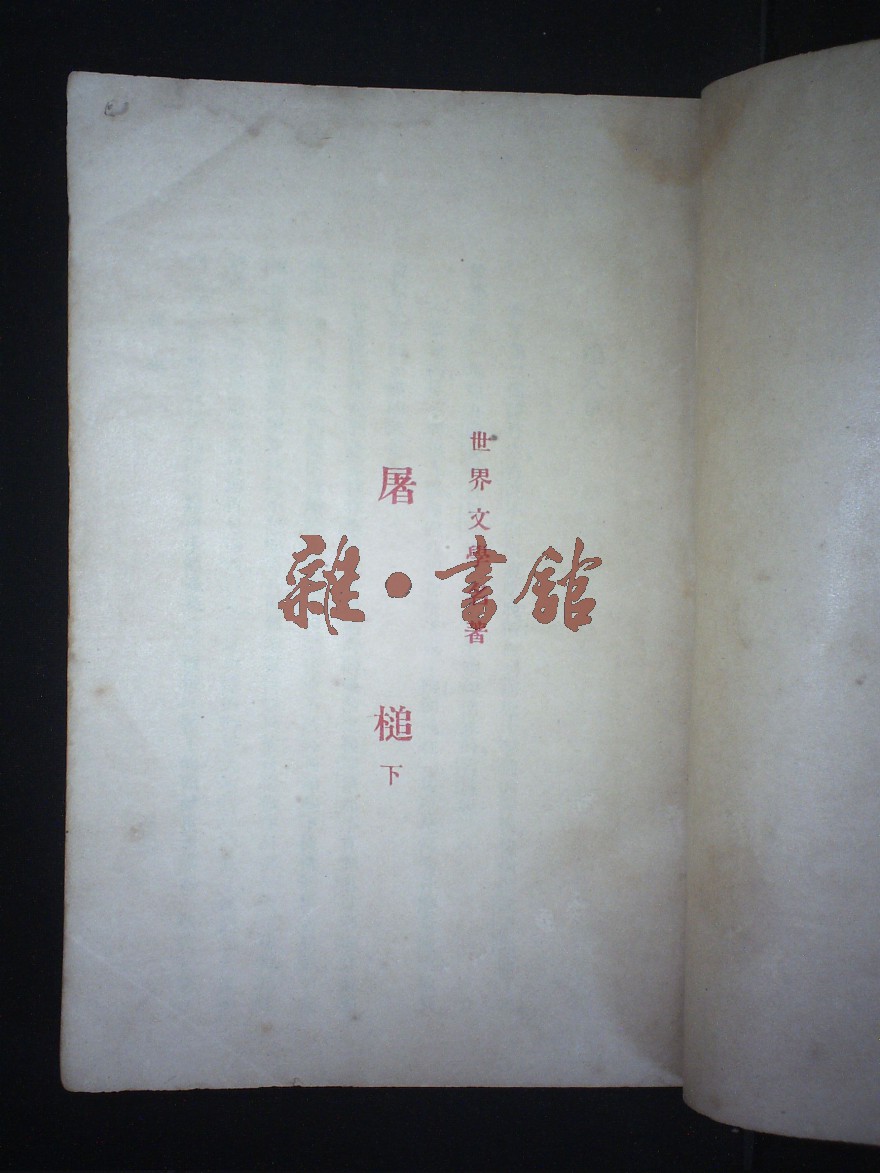 世界文學名著
屠槌
下
雜·書館